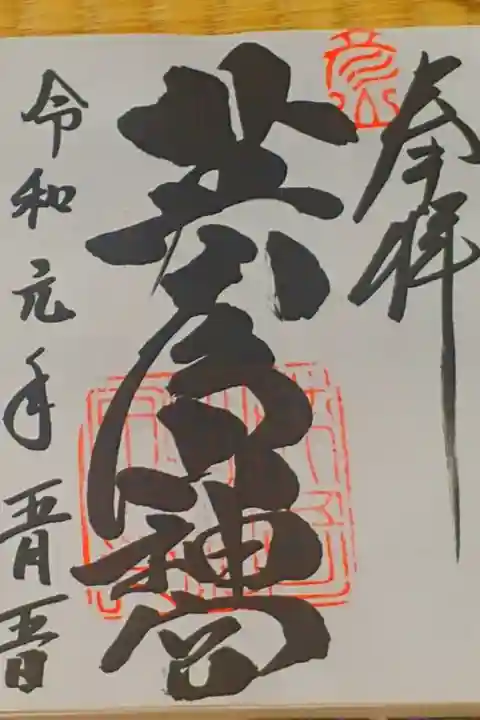 奉拝
英彦山神宮
令和元年五月五日